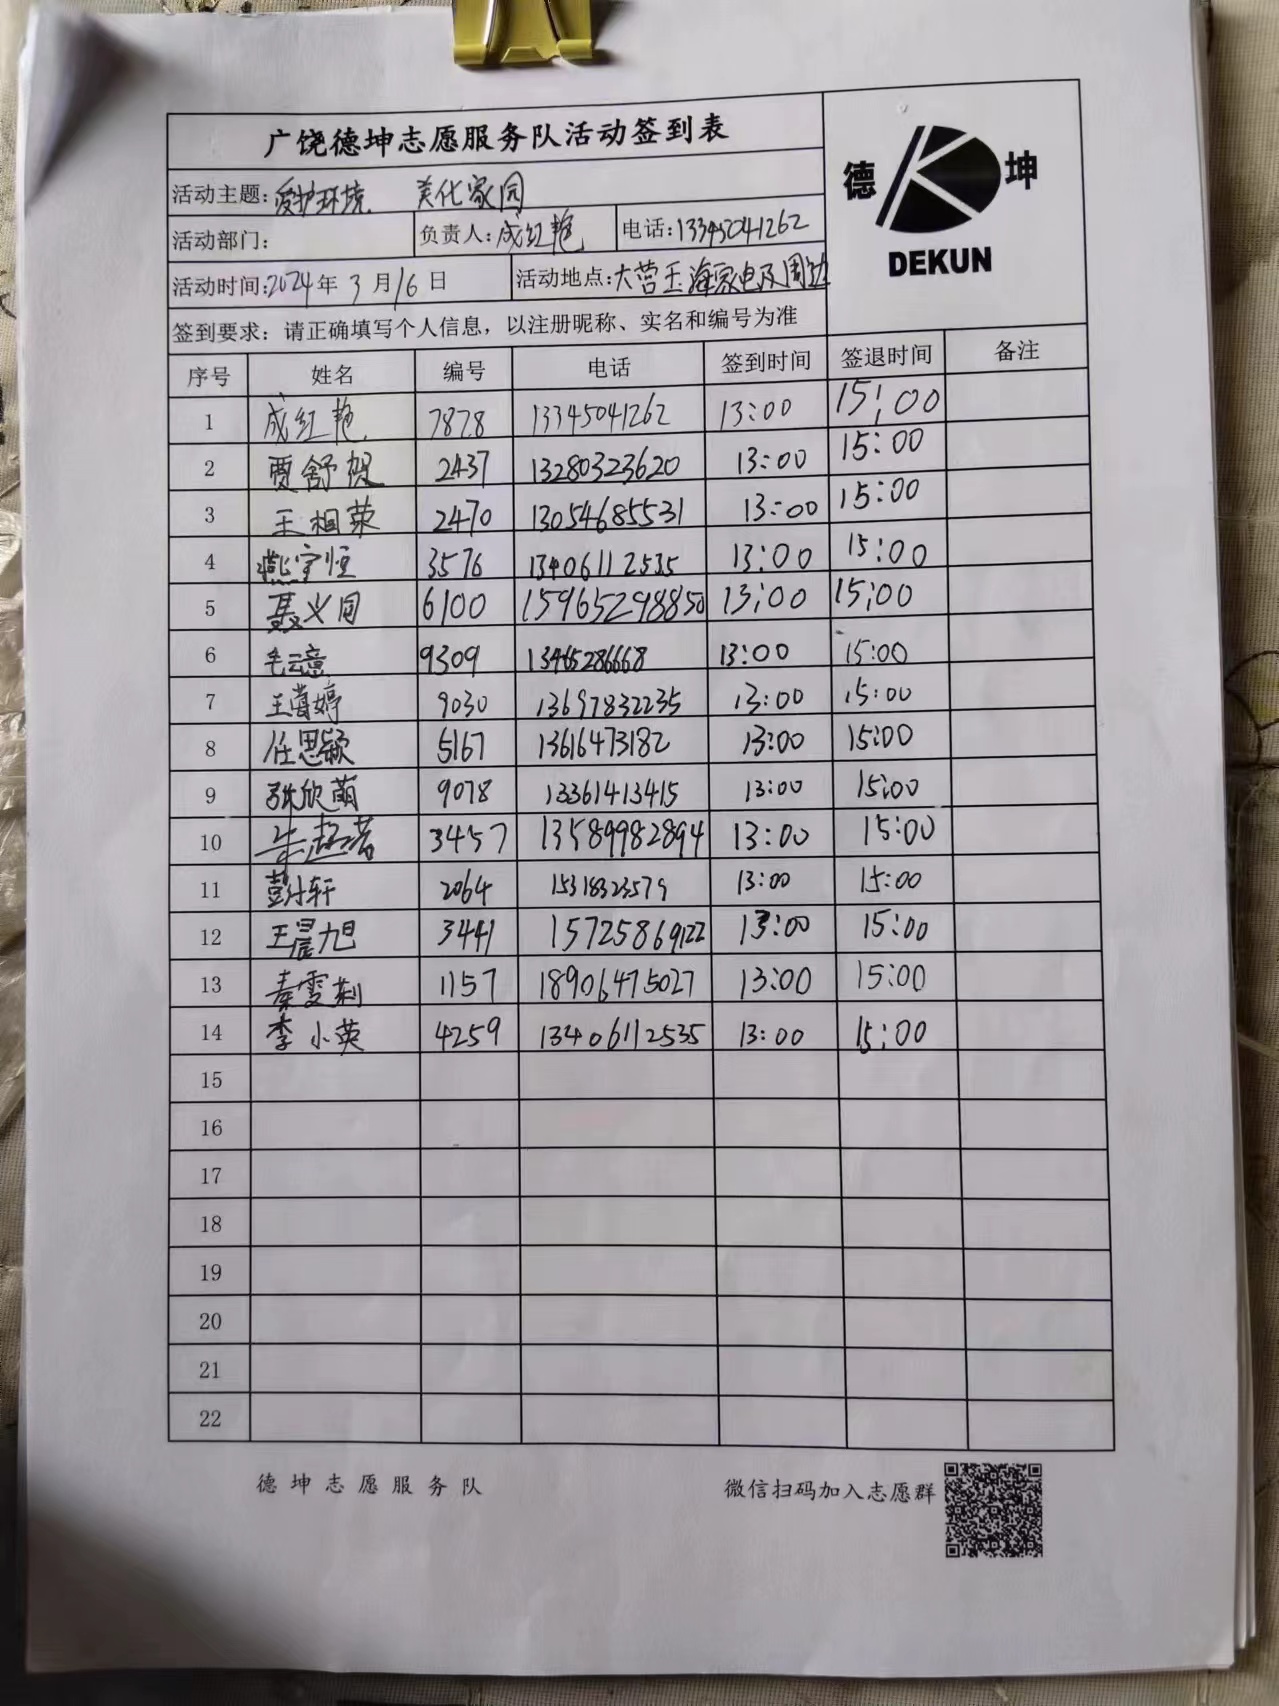 广饶德坤志愿服务队活动签到表
德 坤
DEKUN
活动主题: 爱护环境 美化家园
活动部门: 负责人: 成红艳 电话: 13345041262
活动时间: 2024年 3月16日 活动地点: 大营玉海家电及周边
签到要求: 请正确填写个人信息，以注册昵称、实名和编号为准
序号 姓名 编号 电话 签到时间 签退时间 备注
1 成红艳 7878 13345041262 13:00 15:00
2 贾舒贺 2437 13280323620 13:00 15:00
3 王相荣 2470 13054685531 13:00 15:00
4 燕宇恒 3576 13406112535 13:00 15:00
5 聂义同 6100 15965298850 13:00 15:00
6 毛云意 9309 13465286668 13:00 15:00
7 王婷 9030 13697832235 13:00 15:00
8 任思颖 5167 13616473182 13:00 15:00
9 张欣萌 9078 13361413415 13:00 15:00
10 3457 13589982894 13:00 15:00
11 彭轩 2064 15318323579 13:00 15:00
12 王晨旭 3441 15725869122 13:00 15:00
13 秦雯 1157 18906475027 13:00 15:00
14 李小英 4259 13406112535 13:00 15:00
15
16
17
18
19
20
21
22
德坤志愿服务队 微信扫码加入志愿群